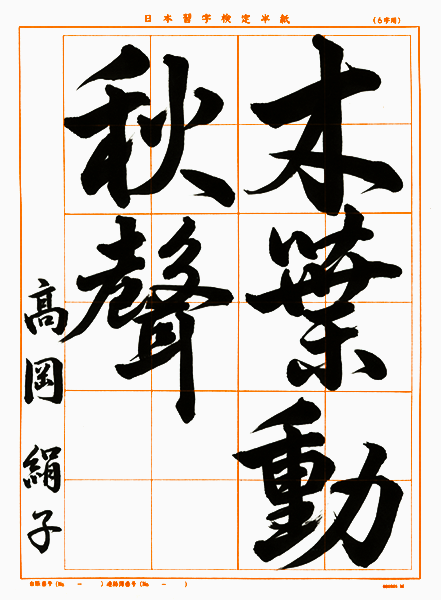 日本習字検定半紙
(6字用)
木葉動
秋聲
高岡 絹子